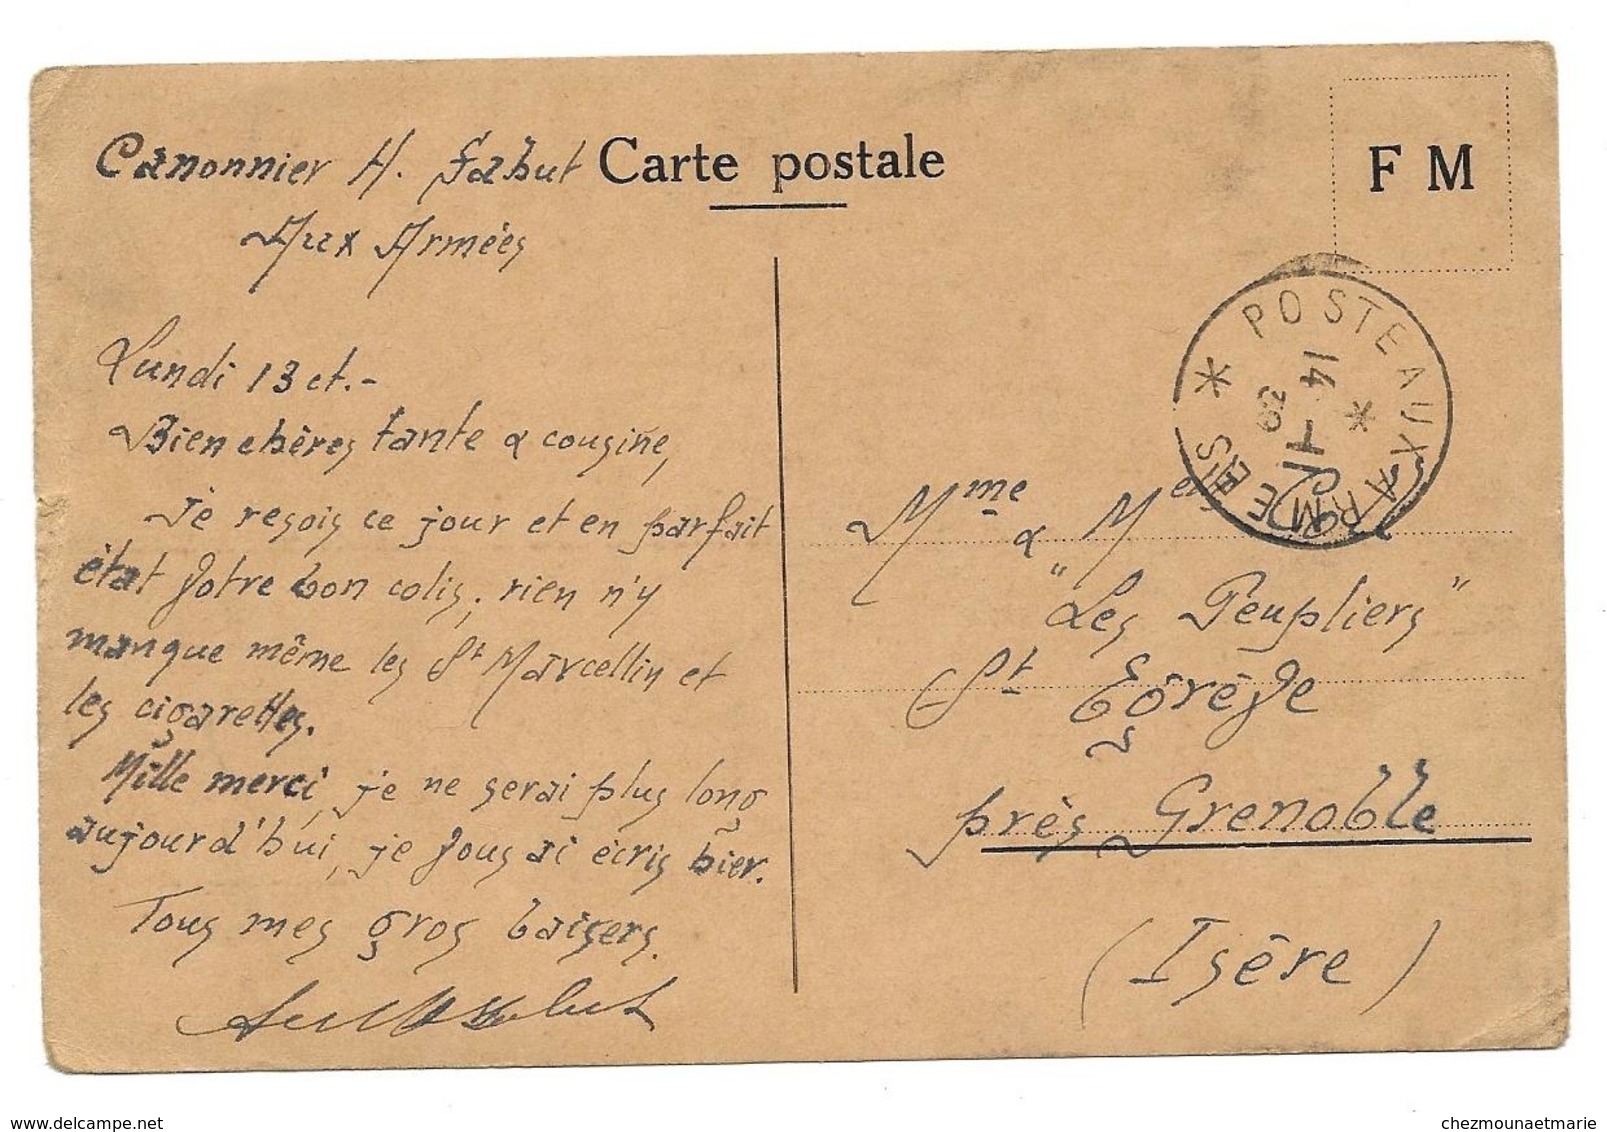 Canonnier H. Fabut
Aux Armées
Carte postale
F M
POSTE AUX ARMEES
14 - 11
39
Lundi 13 ct.-
Bien chères tante & cousine,
Je reçois ce jour et en parfait
état votre bon colis, rien n'y
manque même les St Marcellin et
les cigarettes.
Mille merci, je ne serai plus long
aujourd'hui, je vous ai écris hier.
Tous mes gros baisers.
Mme & Mel
"Les Peupliers"
St Egrève
près Grenoble
(Isère)
delcampe.net
chezmounaetmarie